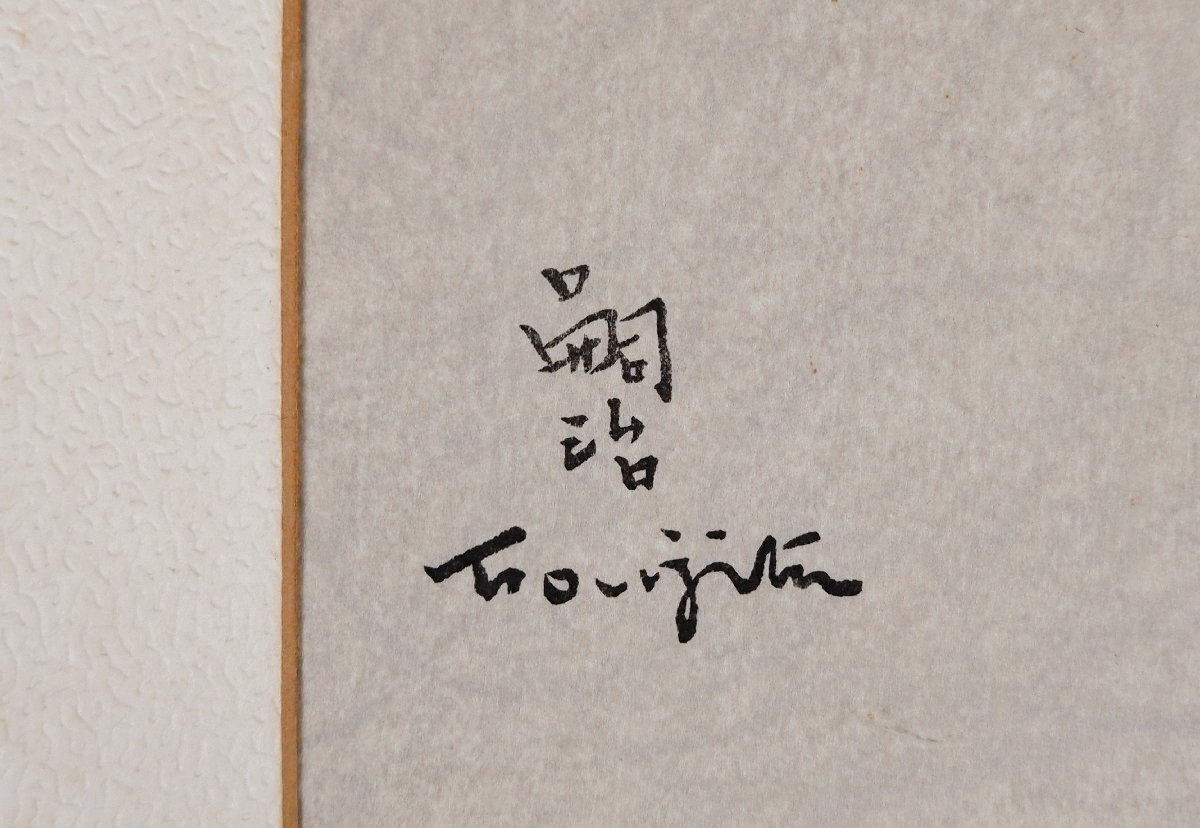 嗣
治
Foujita